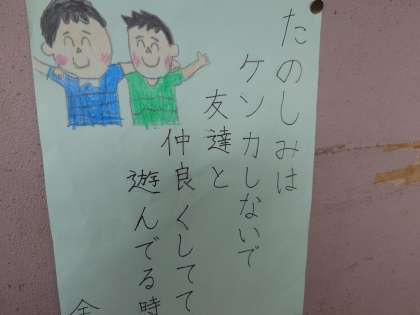 たのしみは
ケンカしないで
友達と
仲良くしてて
遊んでる時